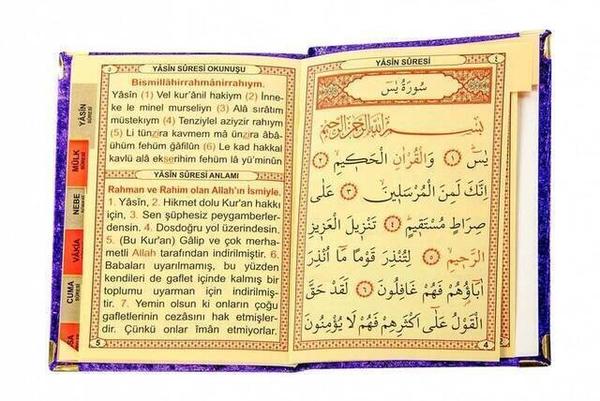 YÂSİN SÛRESİ ٤
سُورَةُ يٰسٓ
بِسْمِ اللّٰهِ الرَّحْمٰنِ الرَّحِيمِ
يٰسٓ ﴿١﴾ وَالْقُرْاٰنِ الْحَك۪يمِ ﴿٢﴾
اِنَّكَ لَمِنَ الْمُرْسَل۪ينَ ﴿٣﴾ عَلٰى
صِرَاطٍ مُسْتَق۪يمٍ ﴿٤﴾ تَنْز۪يلَ الْعَز۪يزِ
الرَّح۪يمِ ﴿٥﴾ لِتُنْذِرَ قَوْمًا مَٓا اُنْذِرَ
اٰبَٓاؤُ۬هُمْ فَهُمْ غَافِلُونَ ﴿٦﴾ لَقَدْ حَقَّ
الْقَوْلُ عَلٰٓى اَكْثَرِهِمْ فَهُمْ لَا يُؤْمِنُونَ
4
YÂSİN SÛRESİ OKUNUŞU
Bismillâhirrahmânirrahıym.
Yâsîn (1) Vel kur'ânil hakiym (2) İnne-
ke le minel murseliyn (3) Alâ sırâtım
müstekıym (4) Tenziylel aziyzir rahıym
(5) Li tünzira kavmem mâ ünzira âbâ-
ühüm fehüm gâfilûn (6) Le kad hakkal
kavlü alâ ekserihim fehüm lâ yü'minûn
YÂSİN SÛRESİ ANLAMI
Rahman ve Rahim olan Allah'ın İsmiyle.
1. Yâsîn, 2. Hikmet dolu Kur'an hakkı
için, 3. Sen şüphesiz peygamberler-
densin. 4. Dosdoğru yol üzerindesin.
5. (Bu Kur'an) Gâlip ve çok merha-
metli Allah tarafından indirilmiştir. 6.
Babaları uyarılmamış, bu yüzden
kendileri de gaflet içinde kalmış bir
toplumu uyarman için indirilmiş-
tir. 7. Yemin olsun ki onların çoğu
gafletlerinin cezasını hak etmişler-
dir. Çünkü onlar îmân etmiyorlar.
5
YÂSİN SÛRESİ
MÜLK SÛRESİ
NEBE SÛRESİ
VÂKIA SÛRESİ
CUMA SÛRESİ